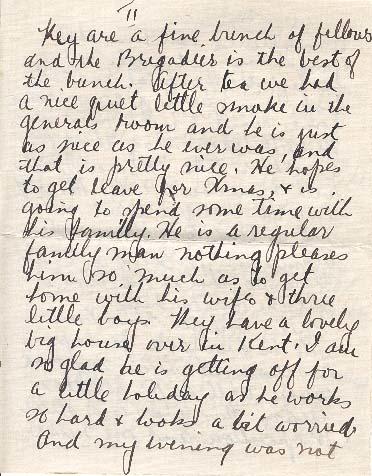 11
They are a fine bunch of fellows
and the Brigadier is the best of
the bunch. After tea we had
a nice quiet little smoke in the
generals room and he is just
as nice as he ever was, and
that is pretty nice. He hopes
to get leave for Xmas, & is
going to spend some time with
his family. He is a regular
family man nothing pleases
him so much as to get
home with his wife & three
little boys. They have a lovely
big house over in Kent. I am
so glad he is getting off for
a little holiday as he works
so hard & looks a bit worried
And my evening was not